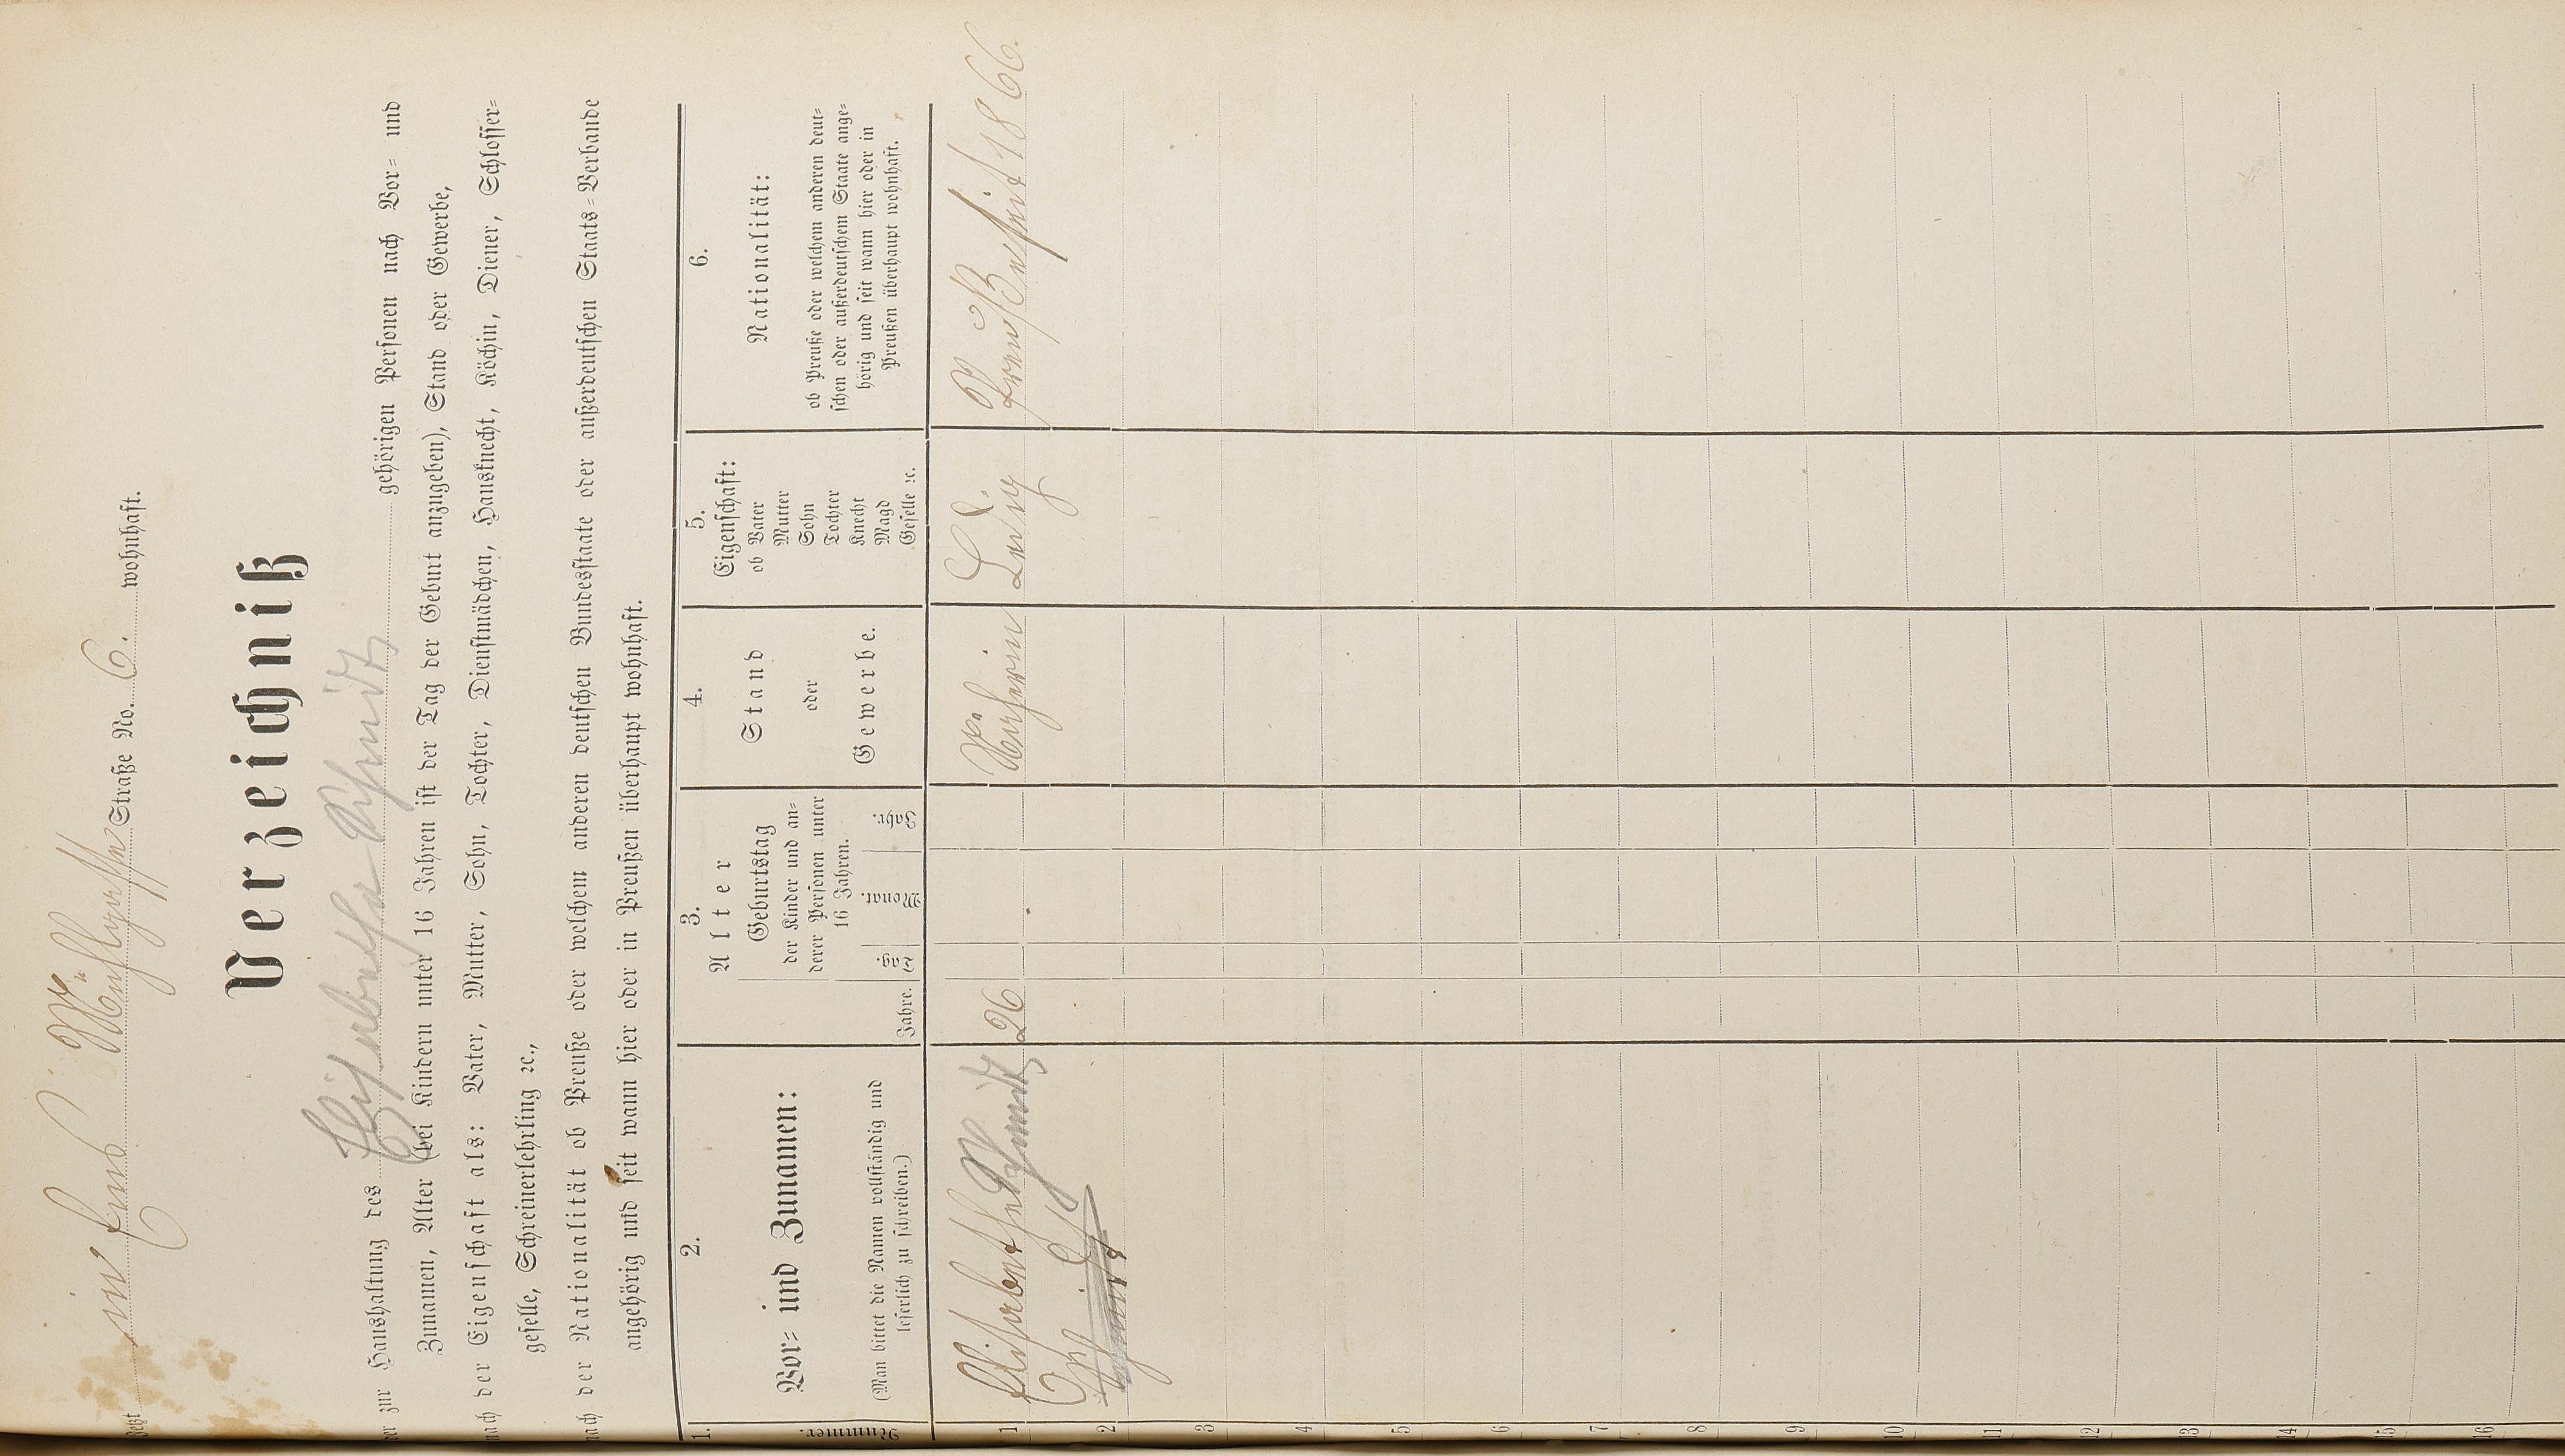 jetzt in Ems Mühlgasse Straße No. 6. wohnhaft.
Verzeichniß
der zur Haushaltung des Elisabetha Schmidt gehörigen Personen nach Vor= und
Zunamen, Alter (bei Kindern unter 16 Jahren ist der Tag der Geburt anzugeben), Stand oder Gewerbe,
nach der Eigenschaft als: Vater, Mutter, Sohn, Tochter, Dienstmädchen, Hausknecht, Köchin, Diener, Schlosser=
geselle, Schreinerlehrling ꝛc.,
nach der Nationalität ob Preuße oder welchem anderen deutschen Bundesstaate oder außerdeutschen Staats=Verbande
angehörig und seit wann hier oder in Preußen überhaupt wohnhaft.
1.
Nummer.
2.
Vor= und Zunamen:
(Man bittet die Namen vollständig und
leserlich zu schreiben.)
3.
Alter
Jahre.
Geburtstag
der Kinder und an=
derer Personen unter
16 Jahren.
Tag.
Monat.
Jahr.
4.
Stand
oder
Gewerbe.
5.
Eigenschaft:
ob Vater
Mutter
Sohn
Tochter
Knecht
Magd
Geselle ꝛc.
6.
Nationalität:
ob Preuße oder welchem anderen deut=
schen oder außerdeutschen Staate ange=
hörig und seit wann hier oder in
Preußen überhaupt wohnhaft.
1 Elisabetha Schmidt 26 Näherin Ledig Preuße seit 1866.
2
3
4
5
6
7
8
9
10
11
12
13
14
15
16